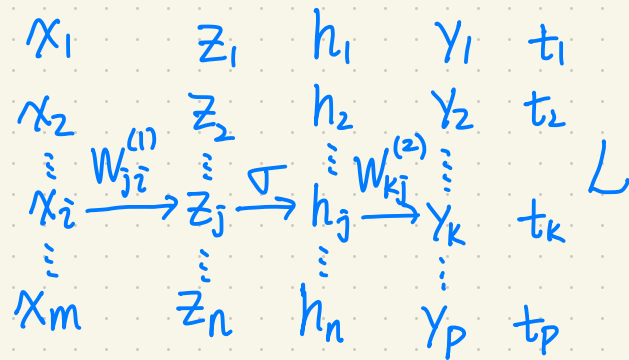 x₁ z₁ h₁ y₁ t₁
x₂ z₂ h₂ y₂ t₂
⋮ W_{ji}^{(1)} ⋮ σ ⋮ W_{kj}^{(2)} ⋮ L
x_i → z_j → h_j → y_k t_k
⋮ ⋮ ⋮ ⋮
x_m z_n h_n y_p t_p